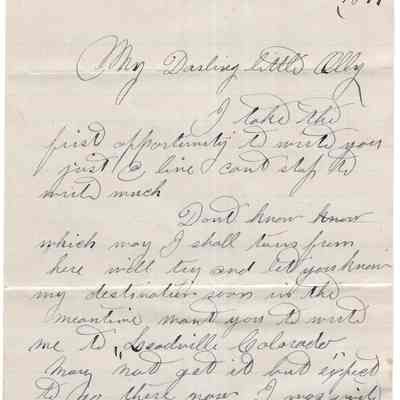 My Darling little Olly
I take the
first opportunity to write you
just a line cant stop to
write much
Dont know know
which way I shall turn from
here will try and let you know
my destination soon in the
meantime want you to write
me to "Leadville Colorado
May not get it but expect
to go there now I was